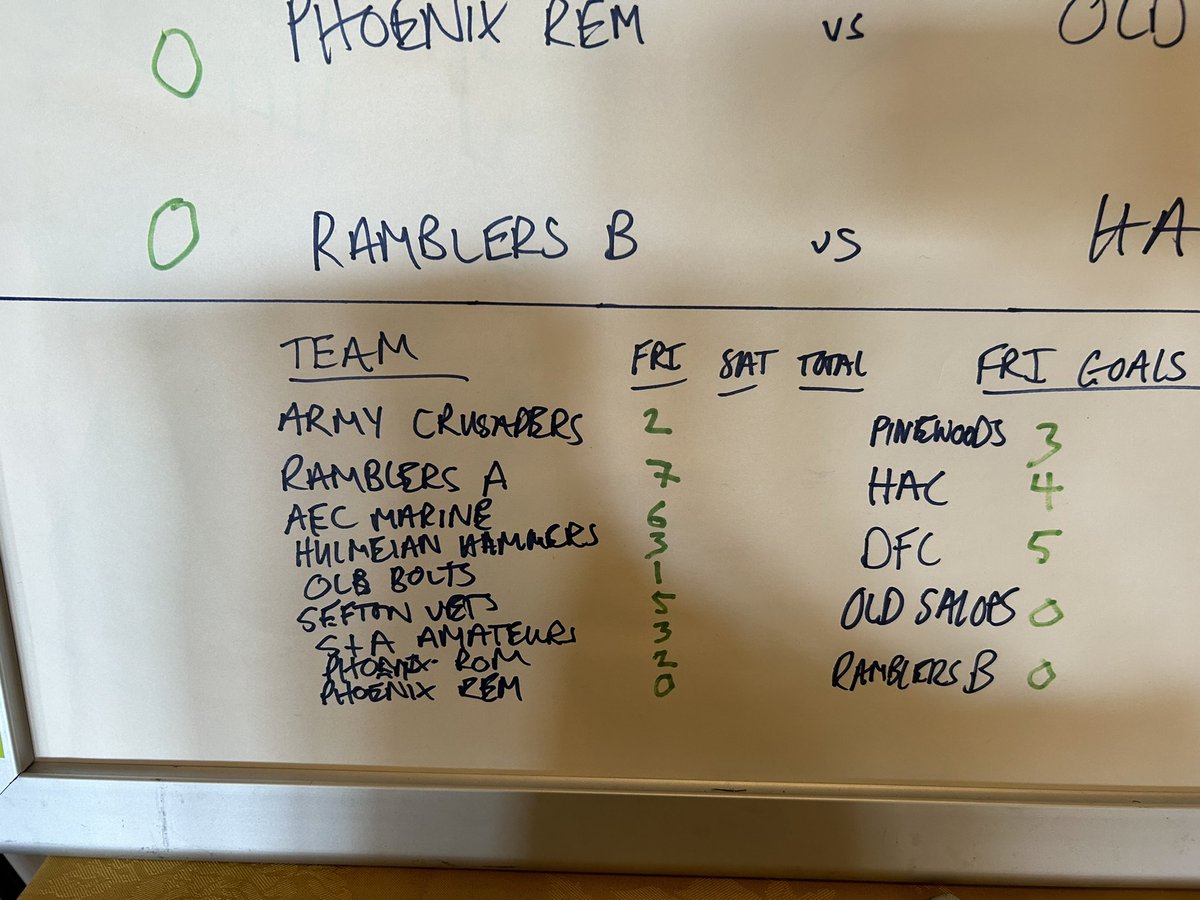 0 PHOENIX REM vs OLD
0 RAMBLERS B vs HA
TEAM FRI SAT TOTAL FRI GOALS
ARMY CRUSADERS 2 PINEWOODS 3
RAMBLERS A 7 HAC 4
AEC MARINE 6
HULMEIAN HAMMERS 3 DFC 5
OLB BOLTS 1
SEFTON VETS 5 OLD SALOPS 0
S+A AMATEURS 3
PHOENIX ROM 2 RAMBLERS B 0
PHOENIX REM 0